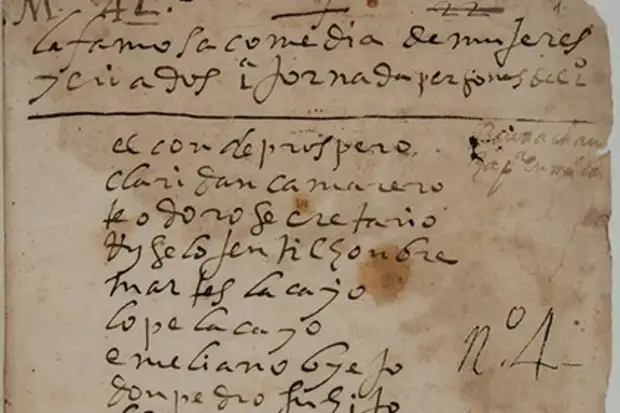 M. 42. 22 1
la famosa comedia de mujeres
y criados 1ª Jornada personas del 1º
el conde prospero
claridan camarero
teodoro secretario
Ynselo jentilhonbre
martes lacayo
lope lacayo
emeliano byejo
don pedro su hijo
nº 4.